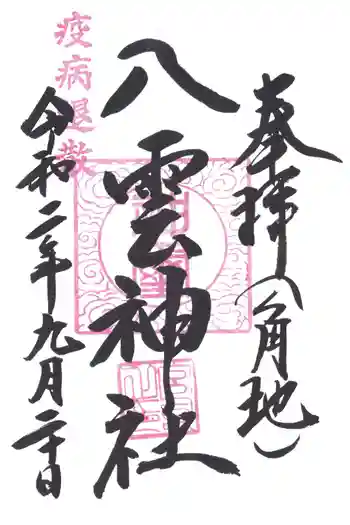 奉拝(八角地)
八雲神社
令和二年九月二十日
疫病退散